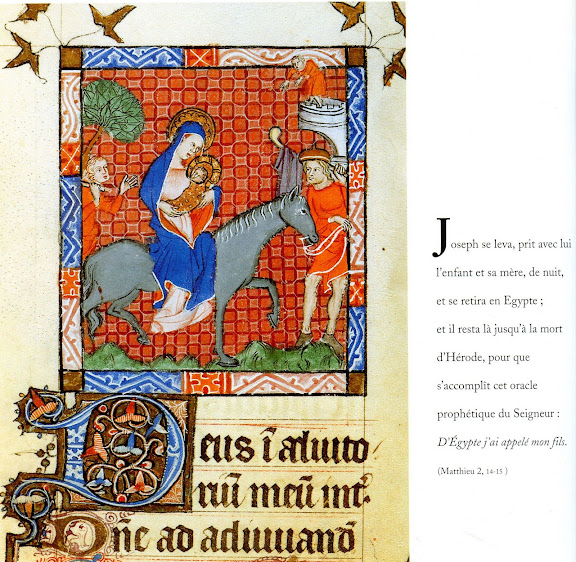 Deus ī adiuto
riū meū int̄.
Dñe ad adiuuand̄
Joseph se leva, prit avec lui
l'enfant et sa mère, de nuit,
et se retira en Egypte ;
et il resta là jusqu'à la mort
d'Hérode, pour que
s'accomplît cet oracle
prophétique du Seigneur :
D'Égypte j'ai appelé mon fils.
(Matthieu 2, 14-15 )